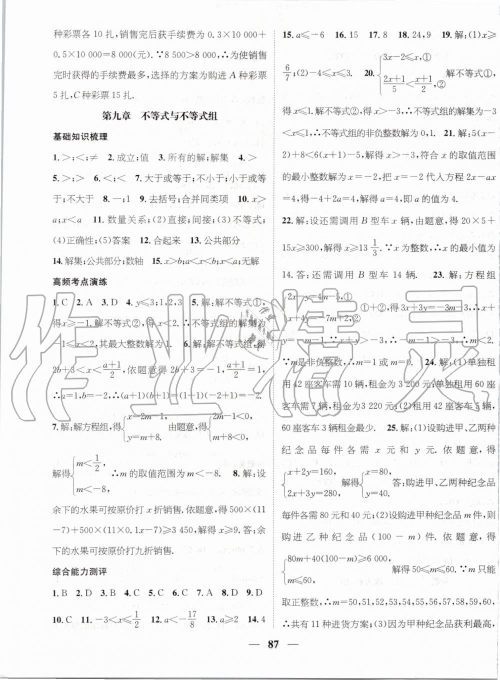 种彩票各 10 扎，销售完后获手续费为 0.3×10 000＋
0.5×10 000＝8 000(元). ∵8 500＞8 000，∴为使销
售完时获得的手续费最多，选择的方案为购进 A 种彩票
5 扎，C 种彩票 15 扎.
第九章 不等式与不等式组
基础知识梳理
1.＞；＜；≠ 2.成立；值 3.所有的解；解集 4.＞
5.＞；＞；＞ 6.＜；＜ 7.大于或等于；不小于；小于或等
于；不大于 8.一；1 9.去括号；合并同类项 10.x＞
a；x＜a 11.数量关系；(2)直接；间接；(3)不等式；
(4)正确性；(5)答案 12.合起来 13.公共部分
14.解集；公共部分；数轴 15.x＞b；a＜x＜b；x＜a；无解
高频考点演练
1.C 2.A 3.D 4.y≤3；1,2,3 5.解：解不等式①，
得x≥－1.解不等式②，得x＜2.∴不等式组的解集为
－1≤x＜2，其最大整数解为 1. 6.解：解不等式，得
7.解：解方程组，得
∴m的取值范围为m＜－8. 8.解：设
余下的水果可按原价打 x 折销售，依题意，得 500×(11
－7)＋500×(11×0.1x－7)≥3 450，解得x≥9.答：余
下的水果可按原价打九折销售.
综合能力测评
1.B 2.A 3.D 4.C 5.B 6.C 7.D 8.D 9.D
10.C 11.－3＜x≤\frac{1}{2} 12.a＜－\frac{17}{8} 13.a≥2 14.4
15.a≤－6 16.15 17.8 18.24，9 19.解：(1)x≥
\frac{6}{7}；(2)－4≤x≤3. 20.{3x－2≤x，① \frac{2x+1}{5}＜\frac{x+1}{2}，② 解不等式①，
得x≤1.解不等式②，得x＞－3，∴不等式组的解集为
－3＜x≤1.∴不等式组的非负整数解为 0，1. 21.解：5(x－
2)＋8＜6(x－1)＋7，解得x＞－3，符合 x 的取值范围
的最小整数解为－2，把x＝－2 代入方程 2x－ax
＝4，得－4＋2a＝4，解得a＝4，即a的值为 4.
22.解：设还需调用 B 型车 x 辆，由题意，得 20×5＋
15x≥300，解得x≥13\frac{1}{3}. ∵x为整数，∴x的最小值为
14.答：至少还需调用 B 型车 14 辆. 23.解：方程组
∵m是非负整数，∴m＝1 或m＝0. 24.解：(1)单独租
用 42 座客车需 10 辆，租金为 3 200 元；单独租用 60 座
60座客车3辆租金最少. 25.解：(1)设购进甲、乙两种
纪念品每件各需 x 元和 y 元. 依题意，得
{x＋2y＝160， 2x＋3y＝280， 解得{x＝80， y＝40. 答：购进甲、乙两种纪念品
每件各需 80 元和 40 元；(2)设购进甲种纪念品 m 件，则
购进乙种纪念品 (100－m) 件. 依题意，得
{80m＋40(100－m)≥6 000， 解得 50≤m≤60. ∵m只能
取正整数，∴m＝50，51，52，53，54，55，56，57，58，59，60，∴
共有 11 种进货方案；(3)因为甲种纪念品获利最高，
作业精灵
87